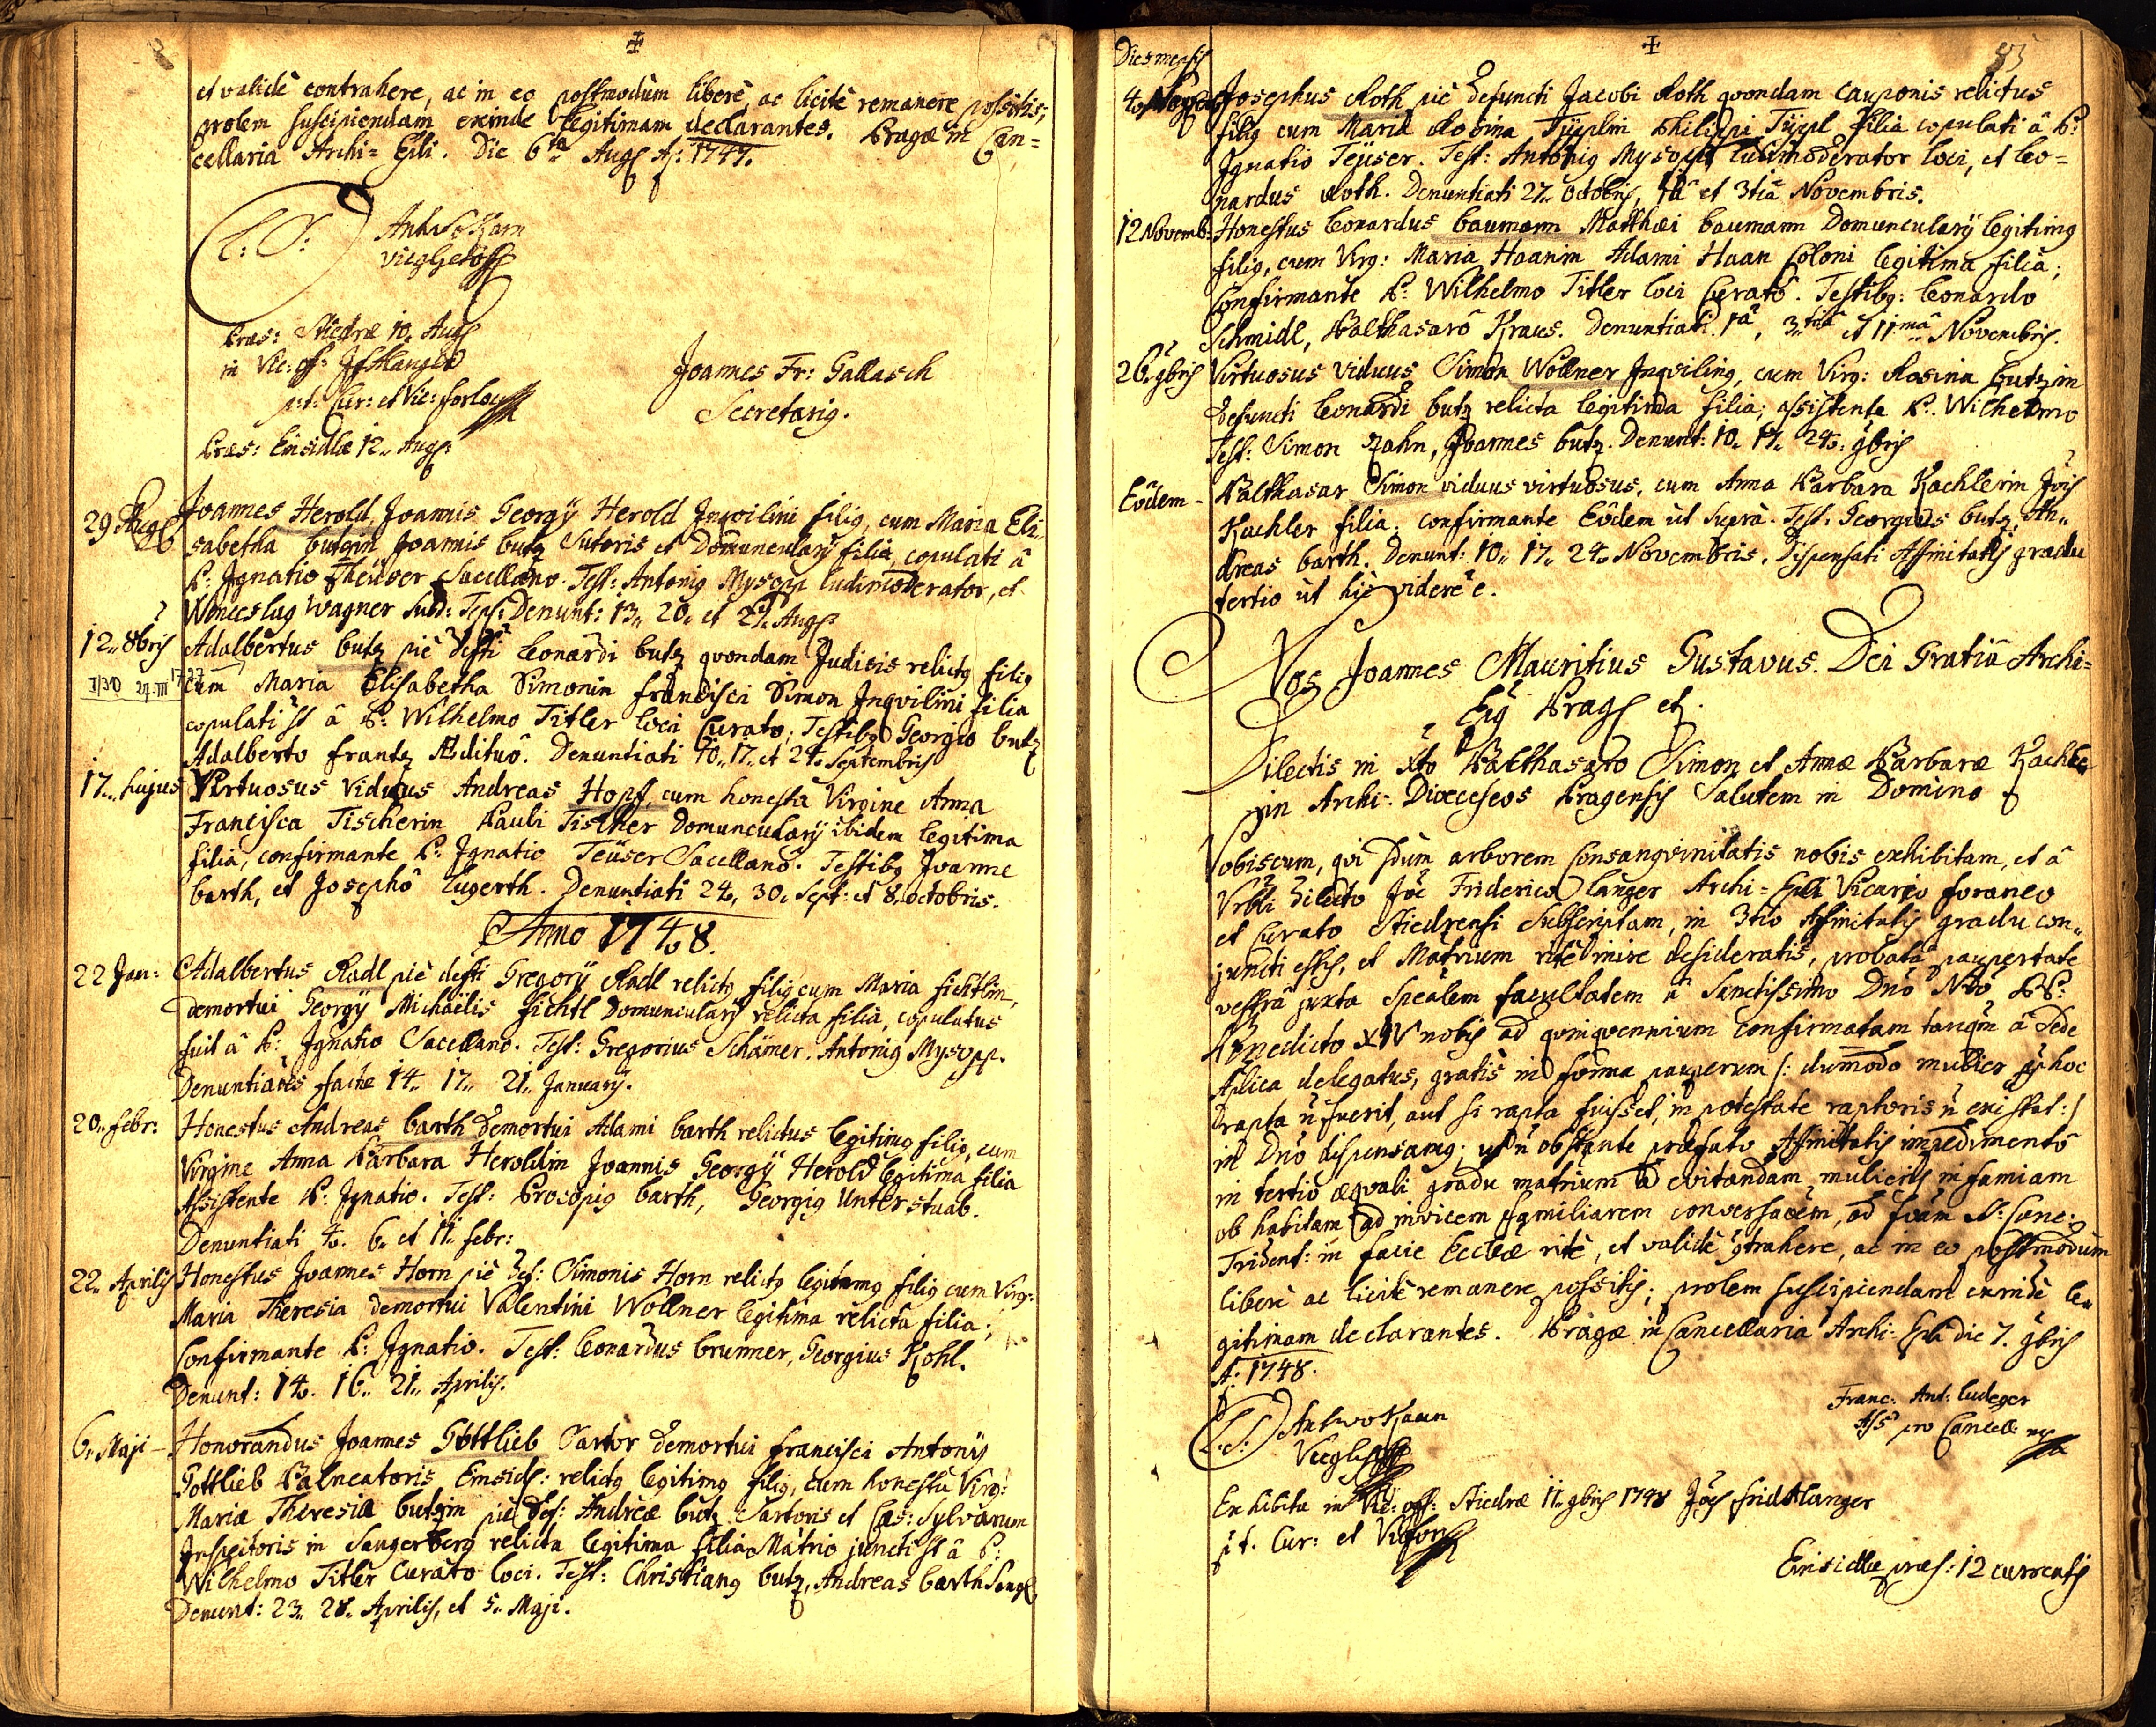 et validè contrahere, ac in eo postmodùm liberè, ac licitè remanere possitis;
prolem suscipiendam exinde legitimam declarantes. Pragæ in Can=
cellaria Archi= Epli. Die 6ta Aug A: 1747.
L: S:
Joannes Fr: Gallasch
Secretarig.
Præs: Stiedræ 10. Aug
in Vic: off:
p:t: Cur: et Vic: forlog
Præs: Einsidlæ 12.. Aug:
29 Aug Joannes Herold, Joannis Georgÿ Herold Inqvilini filig, cum Maria Eli„
sabetha butzin Joannis butz Sutoris et Domuncularÿ filia, copulati â
P: Ignatio Theüser Sacellano. Test: Antonig Mysopp ludimoderator, et
Wenceslag Wagner Denunt: 13„ 20„ et 27. Aug
12„ 8bris Adalbertus butz piè defti Leonardi butz qvondam Judicis relictg filig
cum Maria Elisabetha Simonin francisci Simon Inqvilini filia
copulati st â P: Wilhelmo Titler loci Curato; Testibg Georgio butz
Adalberto frantz Ædituô. Denuntiati 10„ 17„ et 24. Septembris
17.. hujus Virtuosus Viduus Andreas Hopf, cum honesta Virgine Anna
Francisca Tischerin Pauli Tischer Domuncularÿ ibidem legitima
filia, confirmante P: Ignatio Teüser Sacellanô. Testibg Joanne
barth, et Josephô Lugerth. Denuntiati 24, 30. Sept: et 8„ octobris.
Anno 1748.
22 Jan: Adalbertus Radl piè defti Gregorÿ Radl relictg filig cum Maria fichtlin,
demortui Georgÿ Michaëlis fichtl Domuncularÿ relicta filia, copulatus
fuit â P: Ignatio Sacellano. Test: Gregorius Schämer. Antonig Mysopp.
Denuntiaões factæ 14„ 17„ 21„ Januarÿ.
20„ febr: Honestus Andreas barth demortui Adami barth relictus legitimg filig, cum
Virgine Anna Barbara Heroldin Joannis Georgÿ Herold legitima filia
Assistente P: Ignatio. Test: Procopig barth, Georgig Unterstuab.
Denuntiati 4. 6„ et 11„ febr:
22„ Aprilis Honestus Joannes Horn piè def: Simonis Horn relictg legitimg filig cum Virg:
Maria Theresia demortui Valentini Wollner legitima relicta filia;
Confirmante P: Ignatio. Test: Leonardus brunner, Georgius Kohl.
Denunt: 14. 16„ 21„ Aprilis.
6„ Maji – Honorandus Joannes Gottlieb Sartor demortui francisci Antonÿ
Gottlieb Balneatoris Einsidl: relictg legitimg filig, cum honesta Virg:
Mariæ Theresiæ butzin piè def: Andreæ butz Sartoris et Cæs: Sylvarum
Inspectoris in Sangerberg relicta legitima filia Mâtrio juncti st â P:
Wilhelmo Titler Curato loci. Test: Christiang butz, Andreas barth
Denunt: 23„ 28„ Aprilis, et 5„ Maji.
Dies mensis 85
4. Josephus Roth piè defuncti Jacobi Roth qvondam Cauponis relictus
filig cum Maria Rosina Tüplin Philippi Tüpl filia copulati â P:
Ignatio Teüser. Test: Antonig Mysopp ludimoderator loci, et Leo=
nardus Roth. Denuntiati 27„ Octobris, 1â et 3tiâ Novembris.
12 Novemb: Honestus Leonardus baumann Matthæi baumann Domuncularÿ legitimg
filig, cum Virg: Maria Haanin Adami Haan Coloni legitima filia;
Confirmante P: Wilhelmo Titler loci Curatô. Testibg: Leonardo
Schmidl, Balthasarô Kraus. Denuntiati 1â, 3tiâ et 11mâ Novembris.
26„ 9bris Virtuosus viduus Simon Wollner Inqviling, cum Virg: Rosina butzin
defuncti Leonardi butz relicta legitima filia; assistente P. Wilhelmo
Test: Simon Zahn, Joannes butz. Denunt: 10„ 17„ 24„ 9bris
Eôdem – Balthasar Simon viduus virtuosus, cum Anna Barbara Kachlerin Jois
Kachler filia; confirmante Eôdem ùt suprà. Test: Georgius butz, An„
dreas barth. Denunt: 10„ 17„ 24„ Novembris. Dispensati Affinitatis gradu
tertio ùt hìc videre e.
Nos Joannes Mauritius Gustavus Dei Gratiâ Archi=
Epg Prag et.
Dilectis in Xto Balthasaro Simon et Annæ Barbaræ Kachle
rin Archi= Diœceseos Pragensis Salutem in Domino
Vobiscum, qvi sdum arborem Consangvinitatis nobis exhibitam, et â
Vrbli dilecto Joē Friderico langer Archi= Epli Vicario foraneo
et Curato Stiedrensi Subscriptam, in 3tio Affinitatis gradu con„
juncti estis, et Matrium ritè inire desideratis, probatâ paupertate
vestrâ juxta Specalem facultatem â Sanctissimo Dno Nro PP:
Benedicto XIV nobis ad qvinqvennium confirmatam tanqm â Sede
Aplica delegatus, gratis in forma pauperum /: dummodo mulier p hoc
rapta n fuerit, aut si rapta fuisset, in potestate raptoris n existat :/
in Dno dispensamg; ut n obstante præfato Affinitatis impedimento
in tertio æqvali gradu matrium ad evitandam mulieris infamiam
ob habitam ad invicem familiarem conversaõem, ad fõam S: Conc:
Trident: in facie Eccliæ ritè, et validè ɔtrahere, ac in eo postmodum
liberè ac licitè remanere possitis; prolem suscipiendam exinde le„
gitimam declarantes. Pragæ in Cancellaria Archi= Epli die 7. 9bris
A: 1748.
L: S:
Franc: Ant: Ludeger
Ass pro Cancell:
Exhibita in Vic: off: Stiedræ 11„ 9bris 1748 Joes frid Klanger
p t. Cur: et Vic for
Einsidlæ præs: 12 currentis